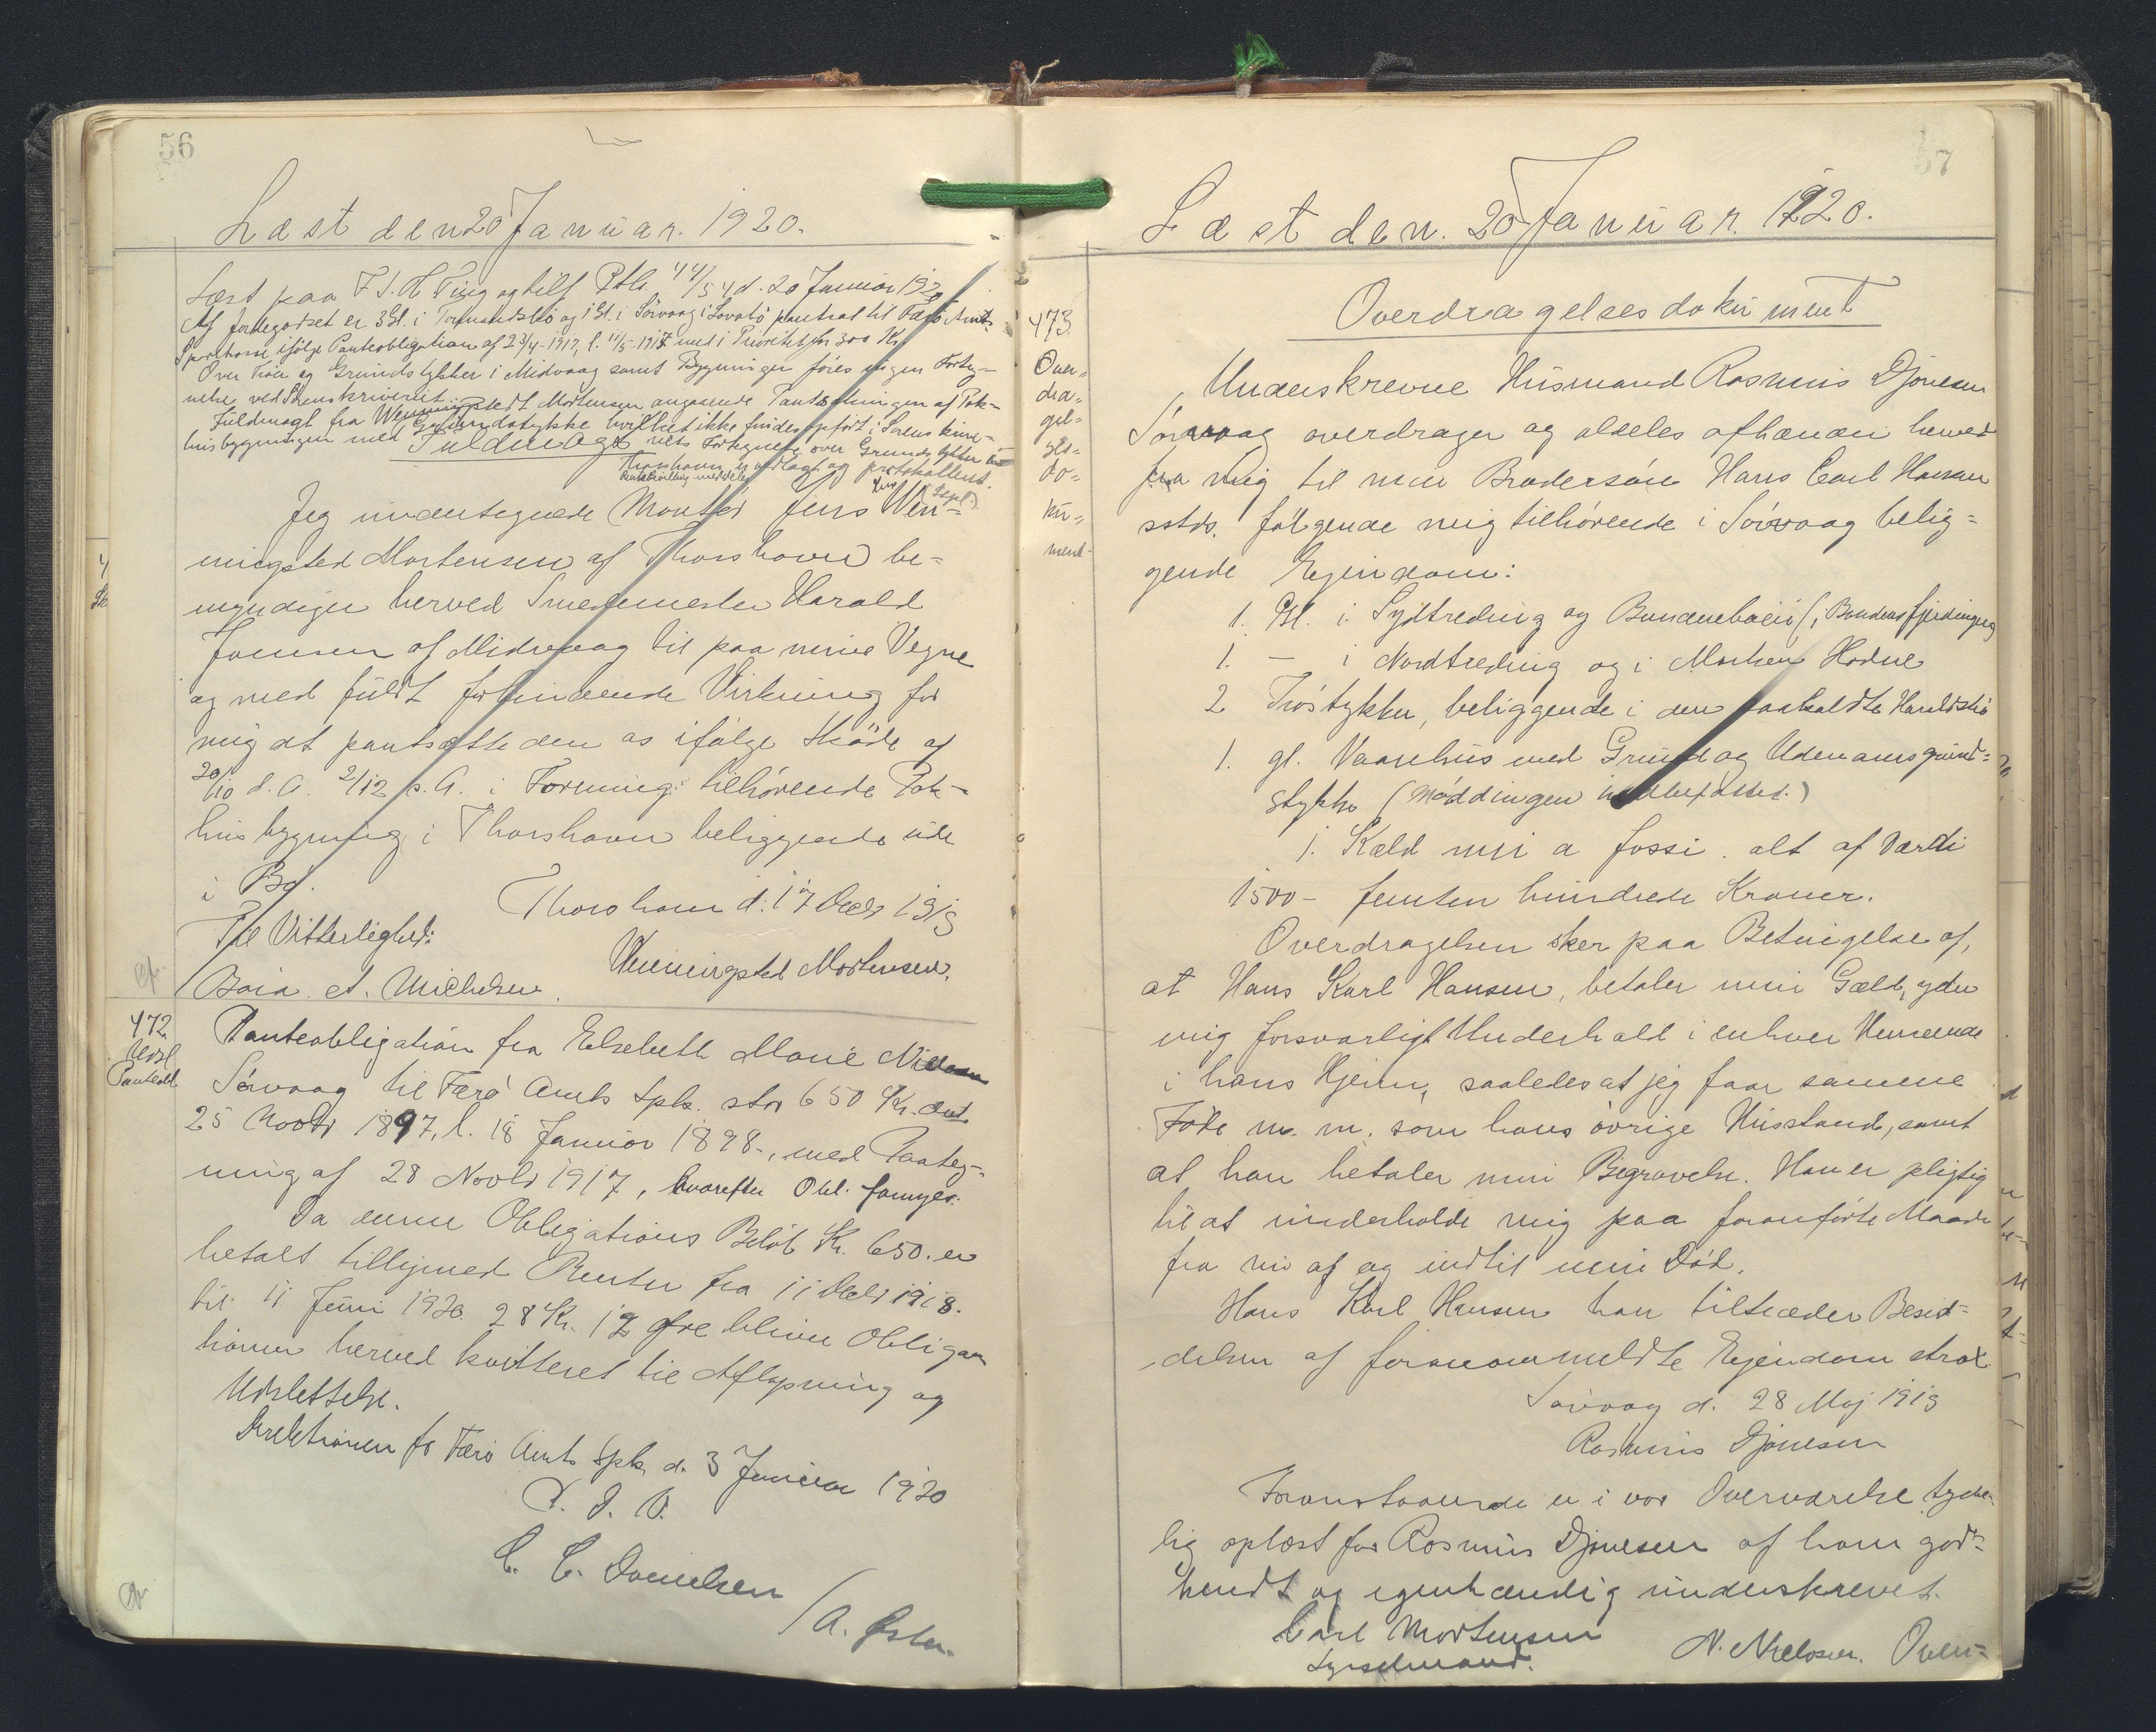 56
Læst den 20 Januar. 1920.
Læst paa F. S. H. Ting og tilf Ptk. 44/54 d. 20 Januar 1920
Af Jordegodset er 3 Gl. i Tormandsbø og 1 Gl. i Sörvaag i Lovabø pantsat til Færø Amts
Sparekasse ifølge Panteobligation af 23/4-1917, l. 11/5-1917 med i Prioritet for 300 Kr.
Over Træer og Grundstykker i Midvaag samt Bygninger føres ingen Forteg-
nelse ved Sorenskriveriet.
Fuldmagt fra Wenningstedt Mortensen angaaende Pantsætningen af Pak-
husbygningen med Grundstykke hvilket ikke findes opført i Sorenskrive-
riets Fortegnelse over Grundstykker i
Thorshavn er vedlagt og protokolleret.
Fuldmagt
Jeg undertegnede Montør Jens Wen-
ningsted Mortensen af Thorshavn be-
myndiger herved Smedemester Harald
Joensen af Midvaag til paa mine Vegne
og med fuldt forbindende Virkning for
mig at pantsætte den os ifølge Skøde af
20/10 d. A. 2/12 s. A. i Forening tilhørende Pak-
husbygning i Thorshavn beliggende ude
i By.
Thorshavn d. 17 Decb 1919
Til Vitterlighed:
Wenningsted Mortensen.
Michelsen
472
Udsl.
Panteobl.
Panteobligation fra Elsebeth Marie Nielsen
Sörvaag til Færø Amts Spk. stor 650 Kr. dat.
25 Novbr 1897, l. 18 Januar 1898., med Paateg-
ning af 28 Novbr 1917, hvorefter Obl. fornyes.
Da denne Obligations Beløb Kr. 650. er
betalt tilligemed Renter fra 11 Decbr 1918.
til 11 Juni 1920. 28 Kr. 12 Øre bliver Obligan
herved kvitteret til Aflysning og
Udslettelse.
Direktionen for Færø Amts Spk, d. 3 Januar 1920
P. D. V.
C. C. Danielsen
/A. Øster.
57
Læst den. 20 Januar. 1920.
473
Over-
dra-
gel-
ses-
do-
ku-
ment-
Overdragelsesdokument
Underskrevne Husmand Rasmus Djonesen
Sörvaag overdrager og aldeles afhænder herved
fra mig til min Brodersön Hans Carl Hansen
sstds. følgende mig tilhørende i Sörvaag belig-
gende Ejendom:
1. Gl. i Sydtreding og Bondenbøen (i Bondens fjerdingen)
1. — i Nordtreding og i Morken Hodne
2 Trøstykker, beliggende i den saakaldte Haraldstrø
1. gl. Vaanehus med Grund og Udemarsgrund-
stykke (Møddingen indbefattet.)
1. Kæld uni a fossi. alt af Værdi
1500 - femten hundrede Kroner.
Overdragelsen sker paa Betingelse af,
at Hans Karl Hansen, betaler min Gæld, yder
mig forsvarligt Underhold i enhver Henseende
i hans Hjem, saaledes at jeg faar samme
Føde m. m. som hans övrige Husstand, samt
at han betaler min Begravelse. Han er pligtig
til at underholde mig paa foranförte Maade
fra nu af og indtil min Död.
Hans Karl Hansen kan tiltræder Besid-
delsen af foranommeldte Ejendom strax
Sörvaag d. 28 Maj 1919
Rasmus Djonesen
Foranstaaende er i vor Overværelse tyde-
lig oplæst for Rasmus Djonesen af ham god-
kendt og egenhændig underskrevet.
Carl Mortensen
Sysselmand.
N. Nielsen. Over-